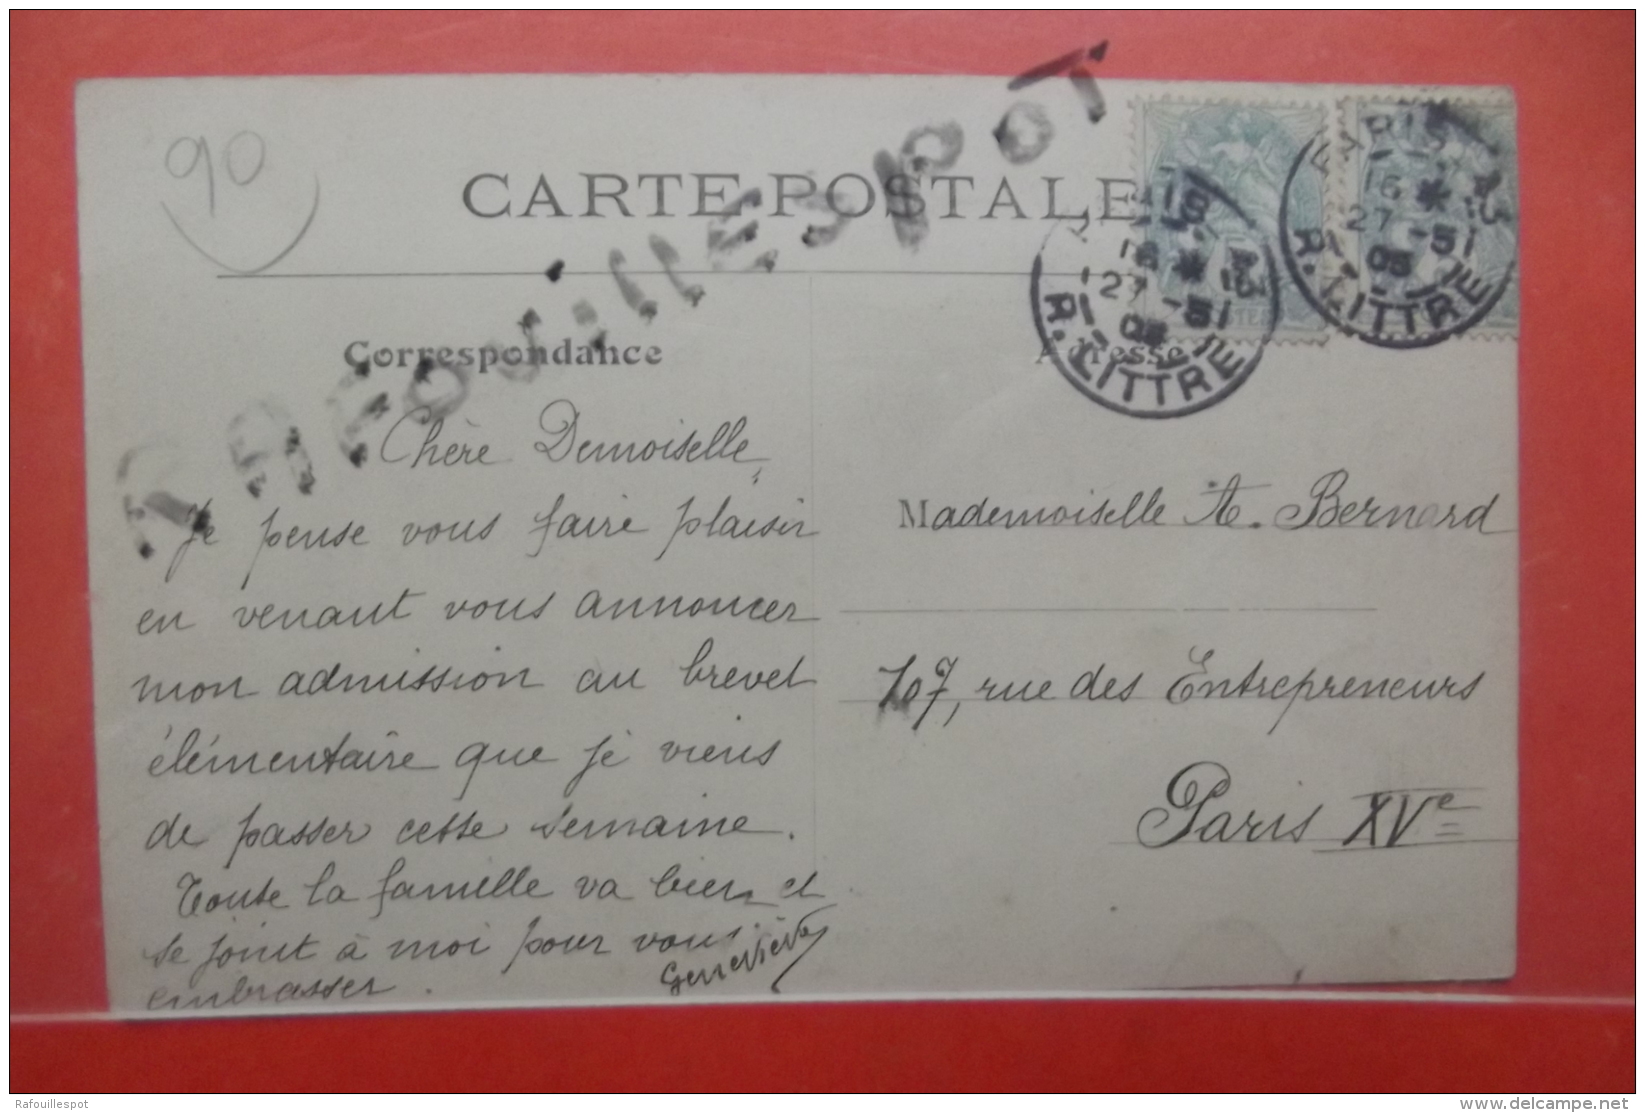 90
CARTE POSTALE
RAFOUILLESPOT
PARIS
16 * 15
27 -5
05
R. LITTRE
PARIS
16 * 15
27 -5
05
R. LITTRE
Correspondance
Adresse
Chère Demoiselle,
Je pense vous faire plaisir
en venant vous annoncer
mon admission au brevet
élémentaire que je viens
de passer cette semaine.
Toute la famille va bien et
se joint à moi pour vous
embrasser.
Geneviève
Mademoiselle A. Bernard
107, rue des Entrepreneurs
Paris XVe
Rafouillespot
delcampe.net